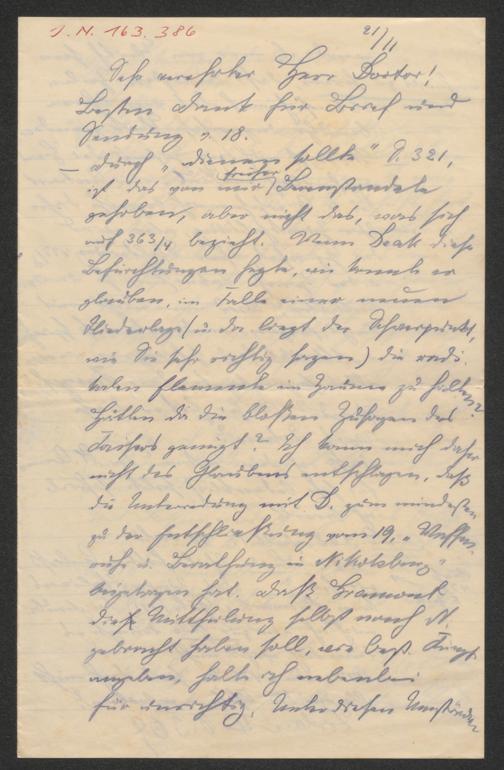 J. N. 163.386
21/11
Sehr verehrter Herr Doctor!
Besten Dank für Brief und
Sendung v. 18.
– Durch „dienen sollte“ S. 321,
ist das von mir früher Beanstandete
gehoben, aber nicht das, was sich
auf 363/4 bezieht. Wenn Deak diese
Befürchtungen hegte, wie konnte er
glauben, im Falle einer neuen
Niederlage (u. da liegt der Schwerpunkt,
wie Sie sehr richtig sagen) die radi-
kalen Elemente im Zaume zu halten?
Hätten da die bloßen Zusagen des
Kaisers genügt? Ich kann mich daher
nicht des Glaubens entschlagen, daß
die Unterredung mit D. zum mindesten
zu der Entschließung vom 19. „Waffen-
ruhe u. Berathung in Nikolsburg“
beigetragen hat. Daß Gramont
diese Mittheilung selbst nach
gebracht haben soll, wie
angeben, halte ich nebenbei
für unrichtig. Unter diesen Umständen